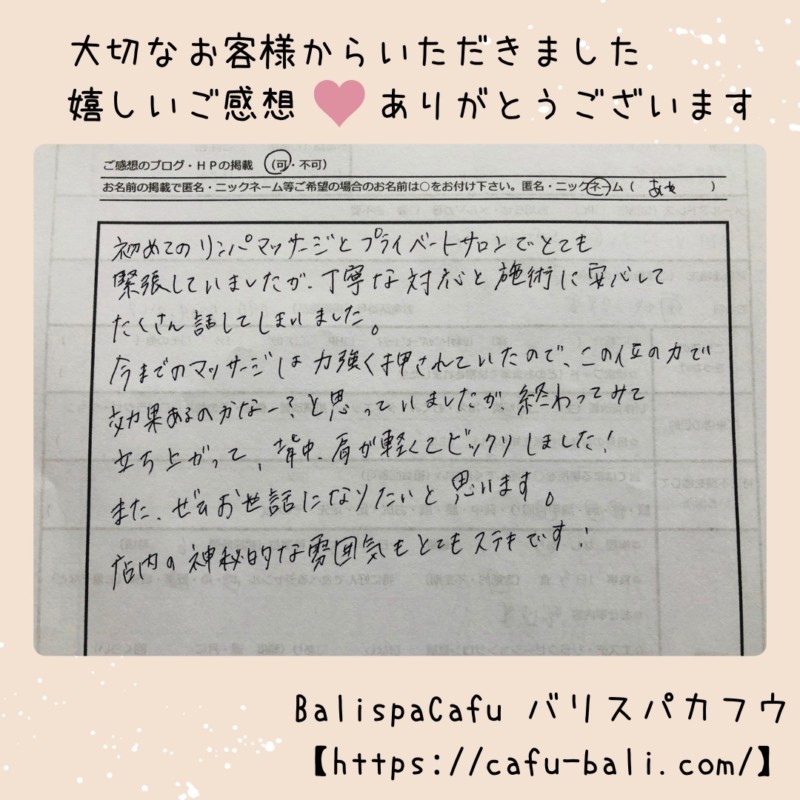 大切なお客様からいただきました
嬉しいご感想 ありがとうございます
ご感想のブログ・HPの掲載 (可・不可)
お名前の掲載で匿名・ニックネーム等ご希望の場合のお名前は○をお付け下さい。匿名・ニックネーム( )
初めてのリンパマッサージとプライベートサロンでとても
緊張していましたが、丁寧な対応と施術に安心して
たくさん話してしまいました。
今までのマッサージは力強く押されていたので、この位の力で
効果あるのかなー?と思っていましたが、終わってみて
立ち上がって、背中、肩が軽くてビックリしました!
また、ぜひお世話になりたいと思います。
店内の神秘的な雰囲気もとてもステキです!
BalispaCafu バリスパカフウ
【https://cafu-bali.com/】